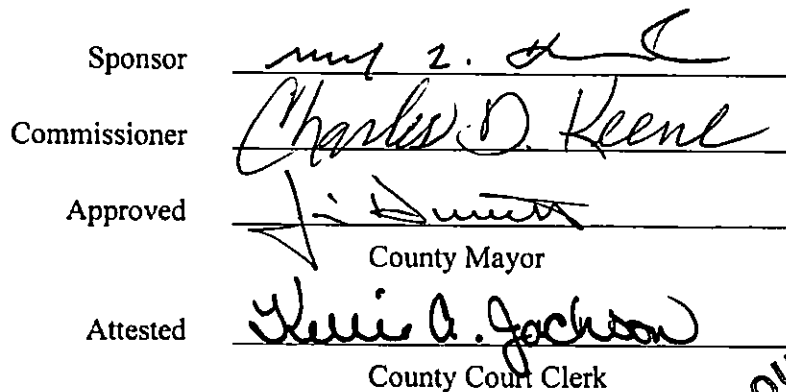 Sponsor
Commissioner Charles D. Keene
Approved
County Mayor
Attested Kellie A. Jackson
County Court Clerk